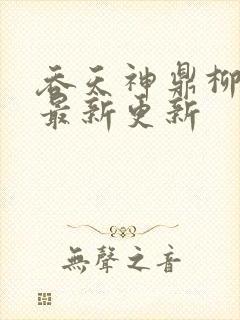 吞天神鼎柳
最新更新
無聲之音